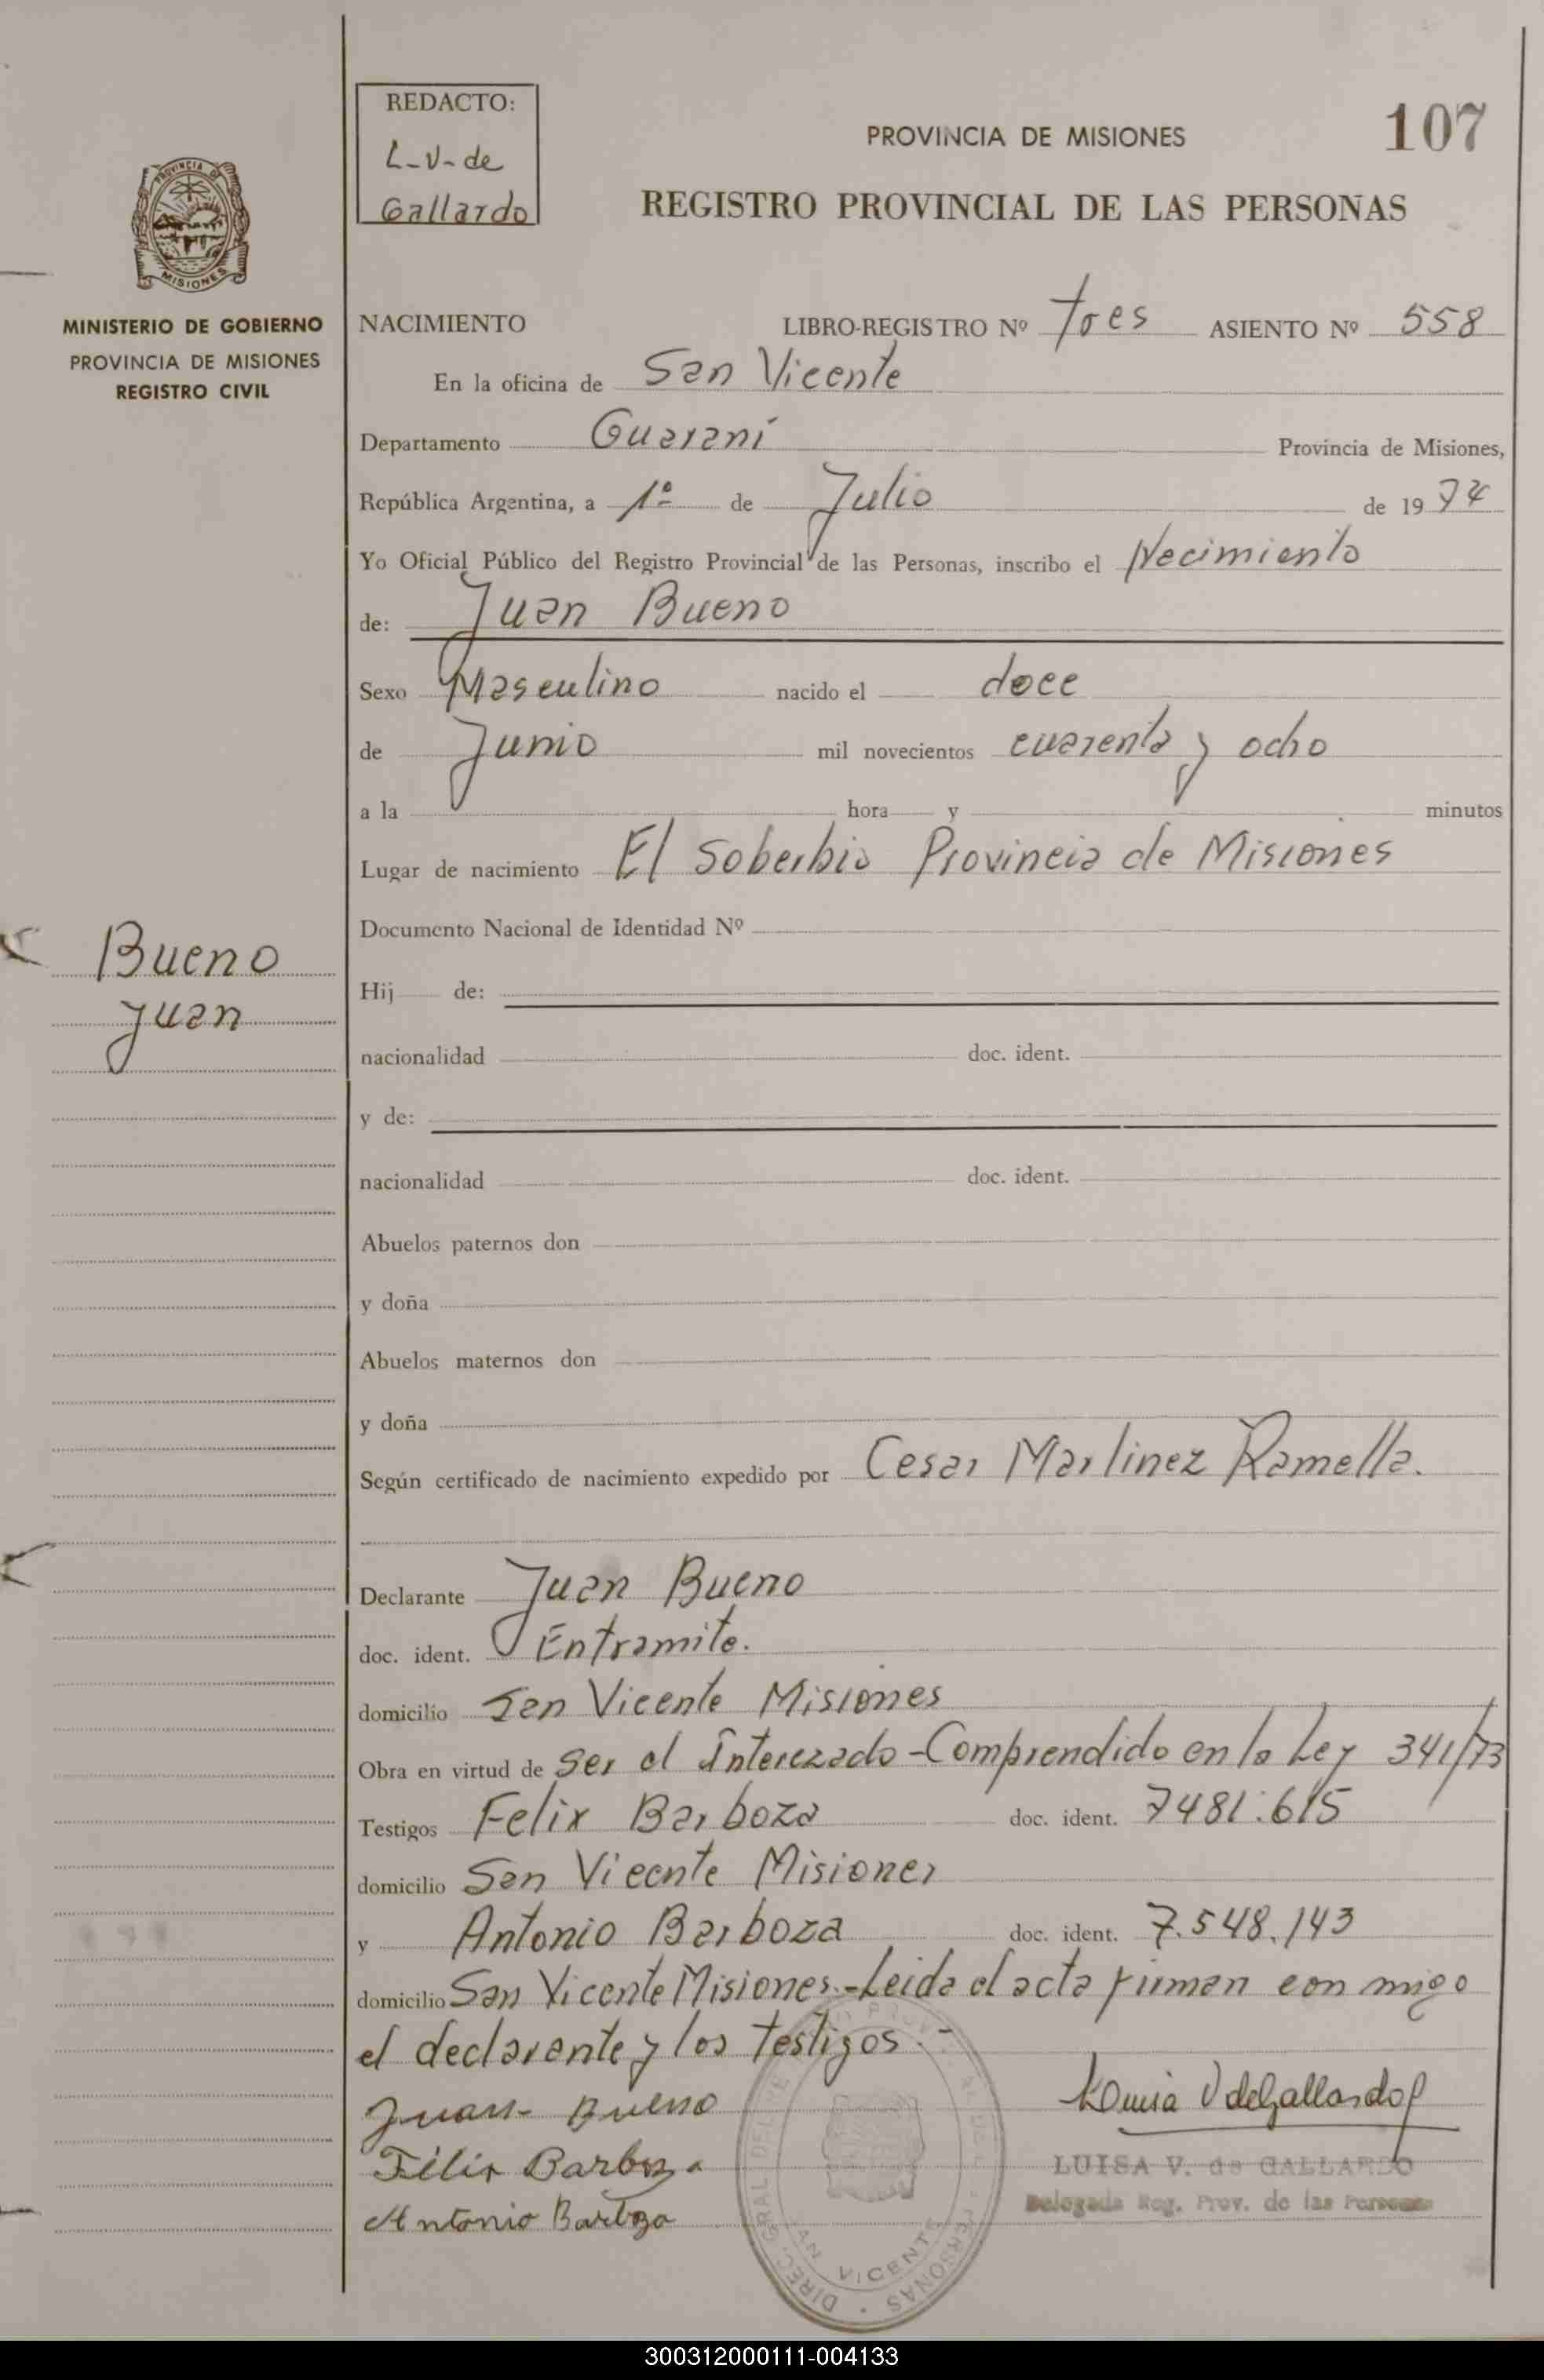 REDACTO:
L-V-de
Gallardo
PROVINCIA DE MISIONES
107
REGISTRO PROVINCIAL DE LAS PERSONAS
PROVINCIA DE
MISIONES
MINISTERIO DE GOBIERNO
PROVINCIA DE MISIONES
REGISTRO CIVIL
NACIMIENTO LIBRO-REGISTRO Nº tres ASIENTO Nº 558
En la oficina de San Vicente
Departamento Guaraní Provincia de Misiones,
República Argentina, a 1º de Julio de 1974
Yo Oficial Público del Registro Provincial de las Personas, inscribo el Nacimiento
de: Juan Bueno
Sexo Masculino nacido el doce
de Junio mil novecientos cuarenta y ocho
a la hora y minutos
Lugar de nacimiento El Soberbio Provincia de Misiones
Documento Nacional de Identidad Nº
Bueno
Juan
Hij de:
nacionalidad doc. ident.
y de:
nacionalidad doc. ident.
Abuelos paternos don
y doña
Abuelos maternos don
y doña
Según certificado de nacimiento expedido por Cesar Martinez Ramella.
Declarante Juan Bueno
doc. ident. Entramite.
domicilio San Vicente Misiones
Obra en virtud de ser el Interezado - Comprendido en la Ley 341/73
Testigos Felix Barboza doc. ident. 7481.615
domicilio San Vicente Misiones
y Antonio Barboza doc. ident. 7.548.143
domicilio San Vicente Misiones.- Leida el acta firman con migo
el declarante y los testigos.-
Juan Bueno
Félix Barboza
Antonio Barboza
Luisa V de Gallardo
LUISA V. de GALLARDO
Delegada Reg. Prov. de las Personas
SAN VICENTE
300312000111-004133